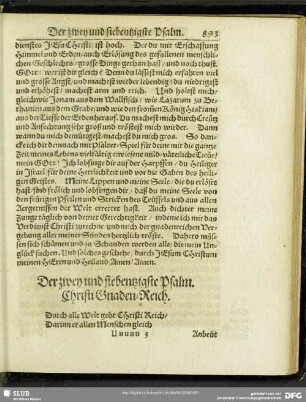 Der zwey und siebentzigste Psalm. 893
dienstes JEsu Christi ist hoch. Der du mit Erschaffung
Himmel und Erden/ auch Erlösung des gefallenen menschli-
chen Geschlechts/ grosse Dinge gethan hast/ und noch thust.
GOtt: wer ist dir gleich? Denn du lässest mich erfahren viel
und grosse Angst/ und machest wieder lebendig/ du niedrigest
und erhöhest/ machest arm und reich. Und holest mich/
gleich wie Jonam aus dem Wallfisch/ wie Lazarum zu Be-
thanien aus dem Grabe und wie den frommen König Hiskiam/
aus der Tieffe der Erden herauf. Du machest mich durch Creutz
und Anfechtung sehr groß und tröstest mich wieder. Dann
wann du mich demütigest/ machest du mich groß. So dan-
cke ich dir demnach mit Psalter-Spiel für deine mir die gantze
Zeit meines Lebens vielfältig erwiesene mild-väterliche Treue/
mein GOtt! Ich lobsinge dir auf der Harpffen/ du Heiliger
in Israel für deine Herrlichkeit und vor die Gaben des heili-
gen Geistes. Meine Lippen und meine Seele/ die du erlöset
hast/ sind frölich und lobsingen dir/ daß du meine Seele von
den feurigen Pfeilen und Stricken des Teuffels und aus allen
Aergernissen der Welt errettet hast. Auch dichtet meine
Zunge täglich von deiner Gerechtigkeit/ indeme ich mir das
Verdienst Christi zurechne und mich der gnadenreichen Ver-
gebung aller meiner Sünden hertzlich tröste. Dahero müs-
sen sich schämen und zu Schanden werden alle/ die mein Un-
glück suchen. Und solches geschehe/ durch JEsum Christum
meinen HErrn und Heiland/ Amen/ Amen.
Der zwey und siebentzigste Psalm.
Christi Gnaden-Reich.
Durch alle Welt geht Christi Reich/
Darinn er allen Menschen gleich
Uuuuu 3 Anbeut
SLUB
DFG